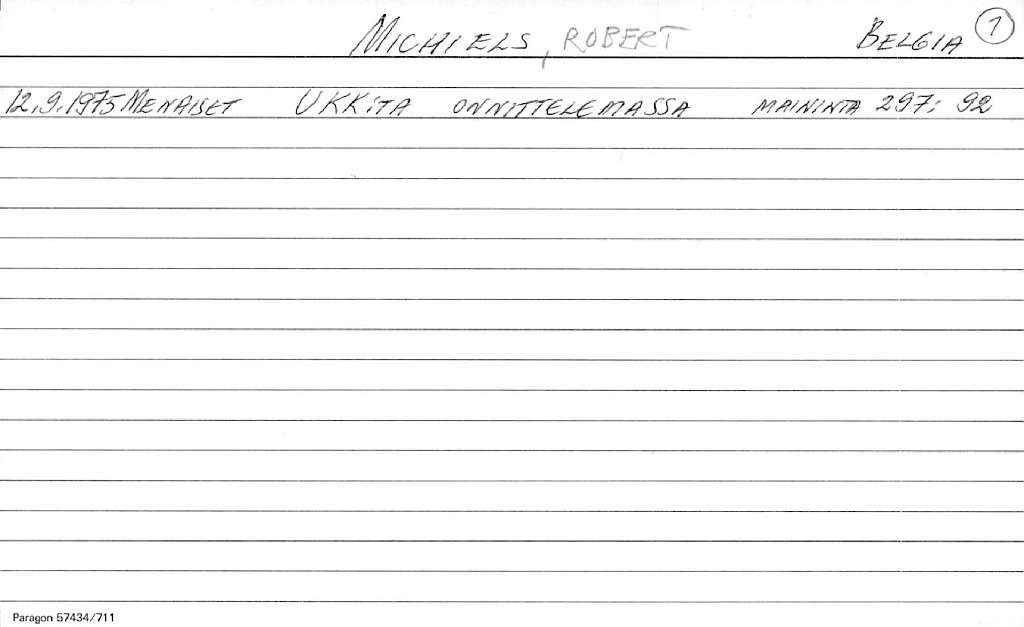 MICHIELS, ROBERT BELGIA 1
12.9.1975 MENAISET UKKiTA ONNITTELEMASSA MAININTA 297: 92
Paragon 57434/711